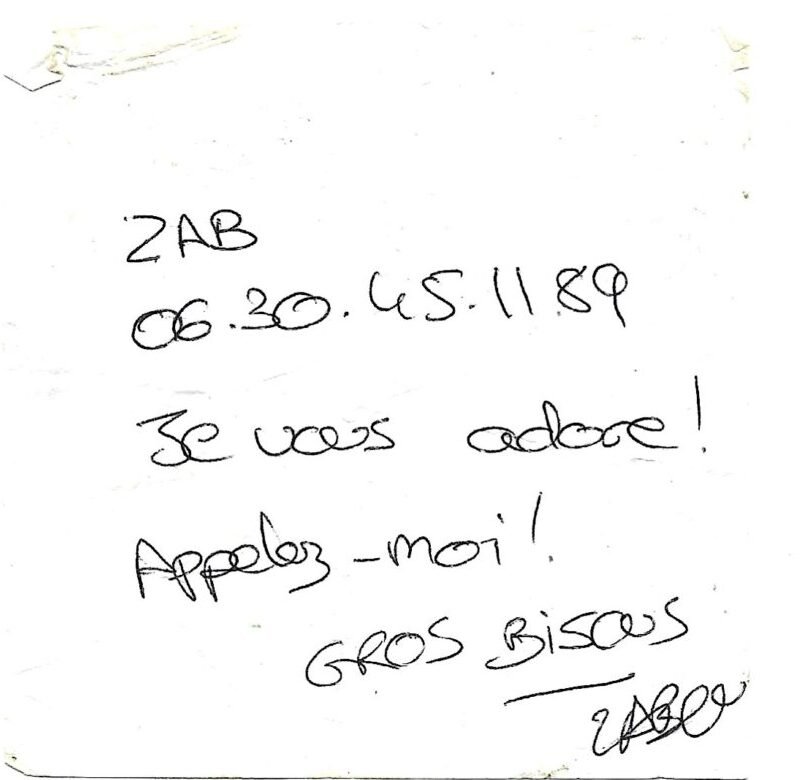 ZAB
06.30.45.11 89
Je vous adore!
Appelez-moi!
GROS Bisous
ZABOU